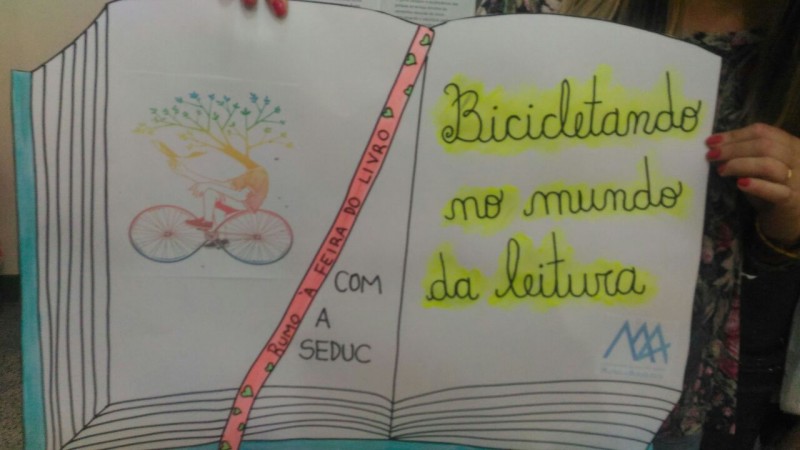 RUMO A FEIRA DO LIVRO
COM
A
SEDUC
Bicicletando
no mundo
da leitura